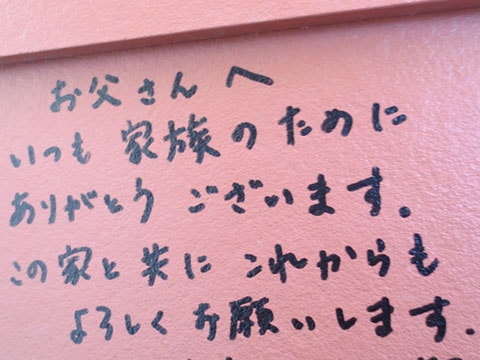 お父さんへ
いつも家族のために
ありがとうございます。
この家と共にこれからも
よろしくお願いします.